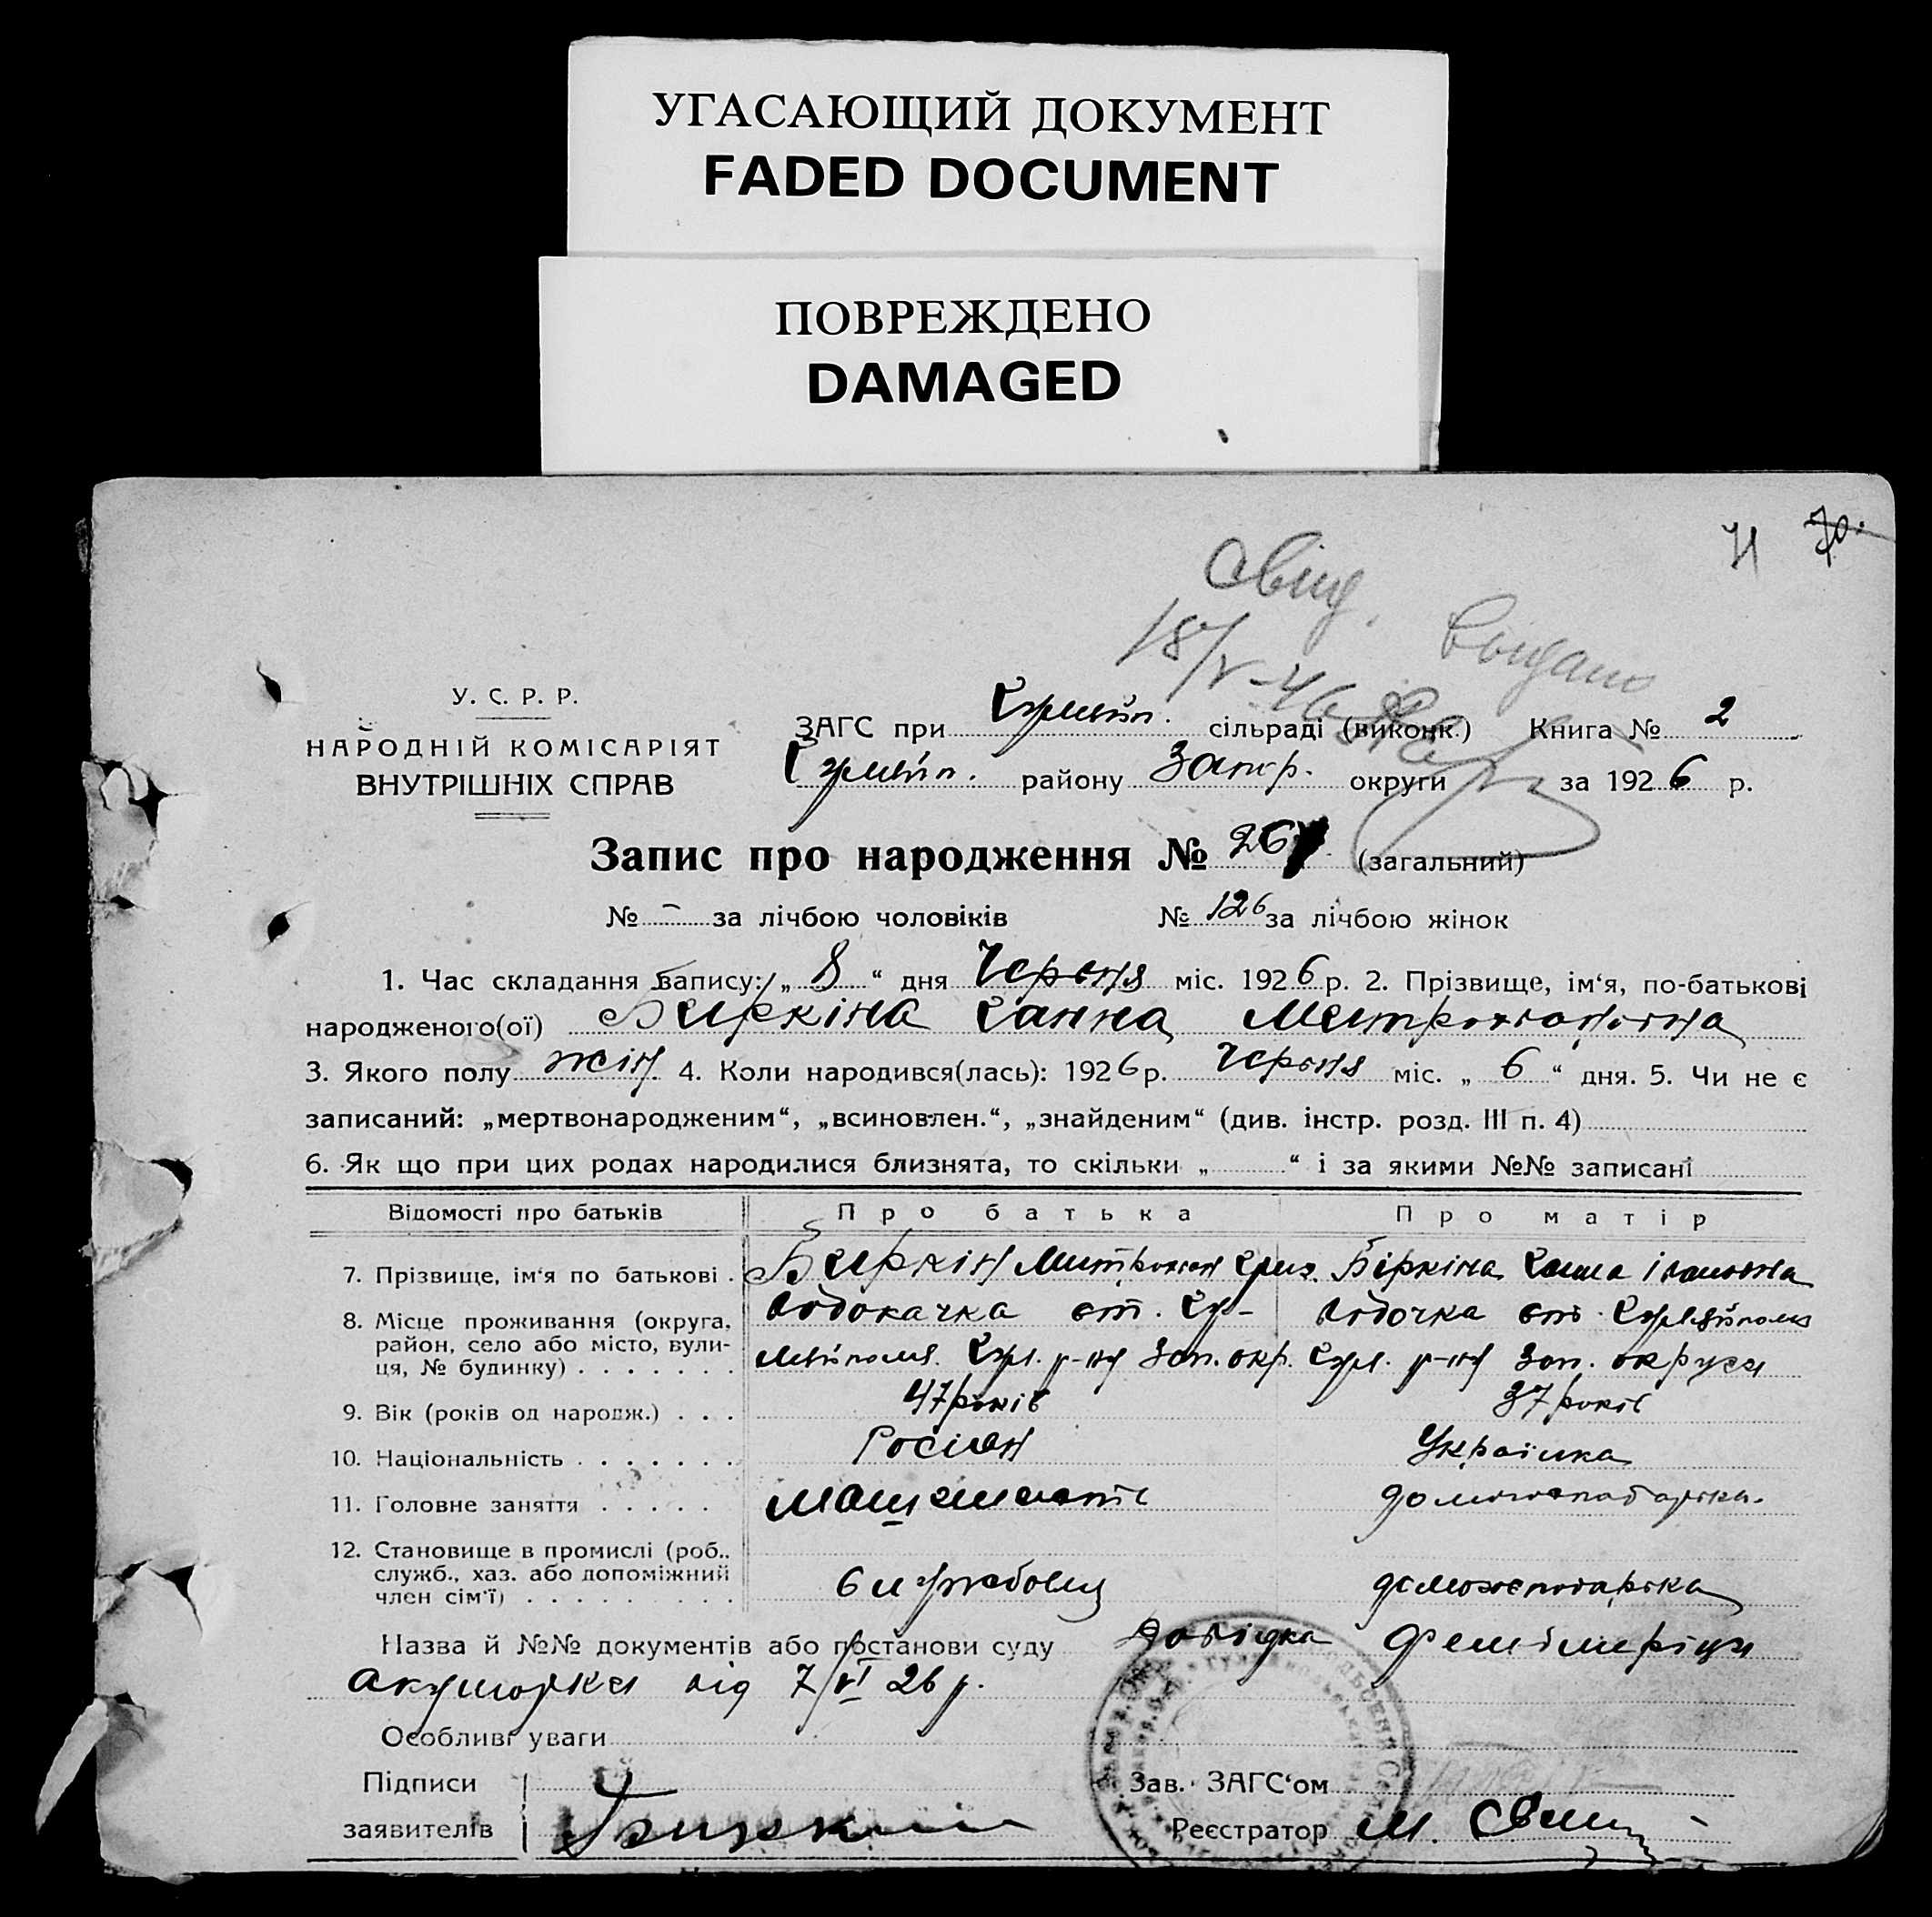 УГАСАЮЩИЙ ДОКУМЕНТ
FADED DOCUMENT
ПОВРЕЖДЕНО
DAMAGED
71 70.
Свид. выдано
18/V-46
У. С. Р. Р.
НАРОДНІЙ КОМІСАРІЯТ
ВНУТРІШНІХ СПРАВ
ЗАГС при Гуляйп. сільраді (виконк.) Книга № 2
Гуляйп. району Запор. округи за 1926 р.
Запис про народження № 267 (загальний)
№ – за лічбою чоловіків № 126 за лічбою жінок
1. Час складання запису: „ 8 “ дня Червня міс. 1926 р. 2. Прізвище, ім‘я, по-батькові
народженого(ої) Биркіна Ганна Митрохванівна
3. Якого полу жін. 4. Коли народився(лась): 1926 р. Червня міс. „ 6 “ дня. 5. Чи не є
записаний: „мертвонародженим“, „всиновлен.“, „знайденим“ (див. інстр. розд. III п. 4)
6. Як що при цих родах народилися близнята, то скільки „ “ і за якими №№ записані
Відомості про батьків Про батька Про матір
7. Прізвище, ім‘я по батькові . Биркін Митрохван Григ. Біркіна Ганна Івановна
8. Місце проживання (округа, район, село або місто, вулиця, № будинку) . . . . . . . Водокачка ст. Гу-
ляйполя Гул. р-ну Зап. окр. Водочка ст. Гуляйполя
Гул. р-ну Зап. округи
9. Вік (років од народж.) . . . 47 років 37 років
10. Національність . . . . . . . Росіян Українка
11. Головне заняття . . . . . Машиніст домогосподарка.
12. Становище в промислі (роб., служб., хаз. або допоміжний член сім‘ї) . . . . . . . . . домогосподарка
Назва й №№ документів або постанови суду Довідка
акушорки від 7/VI 26 р.
Особливі уваги
Підписи
заявителів
Зав. ЗАГС‘ом
Реєстратор М.